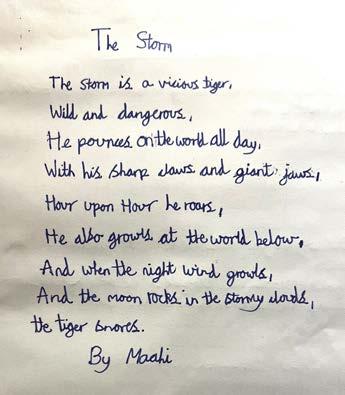 The Storm
The storm is a vicious tiger,
Wild and dangerous,
He pounces on the world all day,
With his sharp claws and giant jaws,
Hour upon Hour he roars,
He also growls at the world below,
And when the night wind growls,
And the moon rocks in the stormy clouds,
the tiger snores.
By Maahi